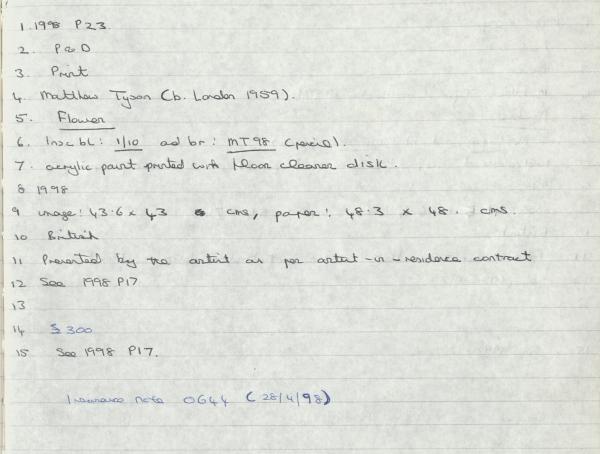 1. 1998 P23.
2. P & D
3. Print
4. Matthew Tyson (b. London 1959).
5. Flower
6. Insc bl: 1/10 ad br: MT98 (pencil).
7. acrylic paint printed with floor cleaner disk.
8 1998
9 image: 43.6 x 43 cms, paper: 48.3 x 48. cms.
10 British
11 Presented by the artist as per artist-in-residence contract
12 See 1998 P17
13
14 £300
15 See 1998 P17.
Insurance note 0644 (28/4/98)